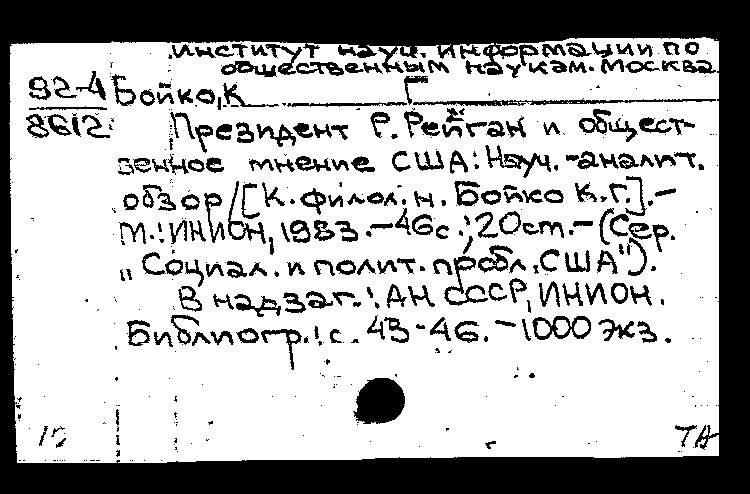 институт науч. информации по
общественным наукам. Москва
92-4
8612
Бойко, К Г
Президент Р. Рейган и общест-
венное мнение США: Науч.-аналит.
обзор/[К. филол. н. Бойко К.Г.].-
М.: ИНИОН, 1983.-46с.; 20см.-(Сер.
"Социал. и полит. пробл. США").
В надзаг.: АН СССР, ИНИОН.
Библиогр.: с. 43-46.-1000 экз.
ТА